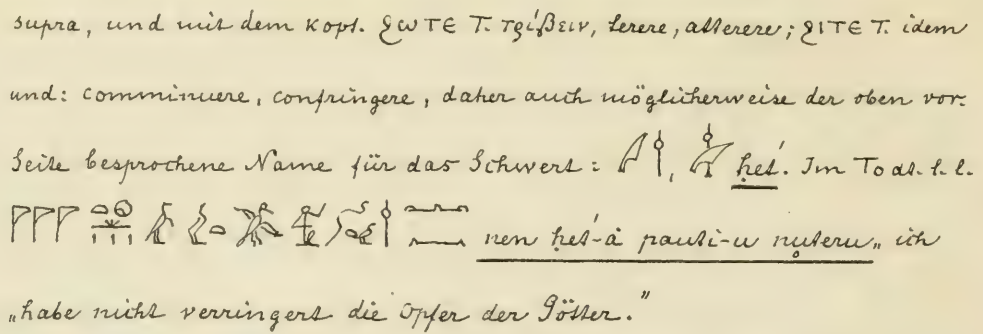 supra, und mit dem Kopt. ϩωτε T. τρίβειν, terere, atterere; ϩιτε T. idem
und: comminuere, confringere, daher auch möglicherweise der oben vor.
Seite besprochene Name für das Schwert: , ḥet́. Im Todt. l. l.
nen ḥet́-à pauti-u nuteru„ ich
„habe nicht verringert die Opfer der Götter."